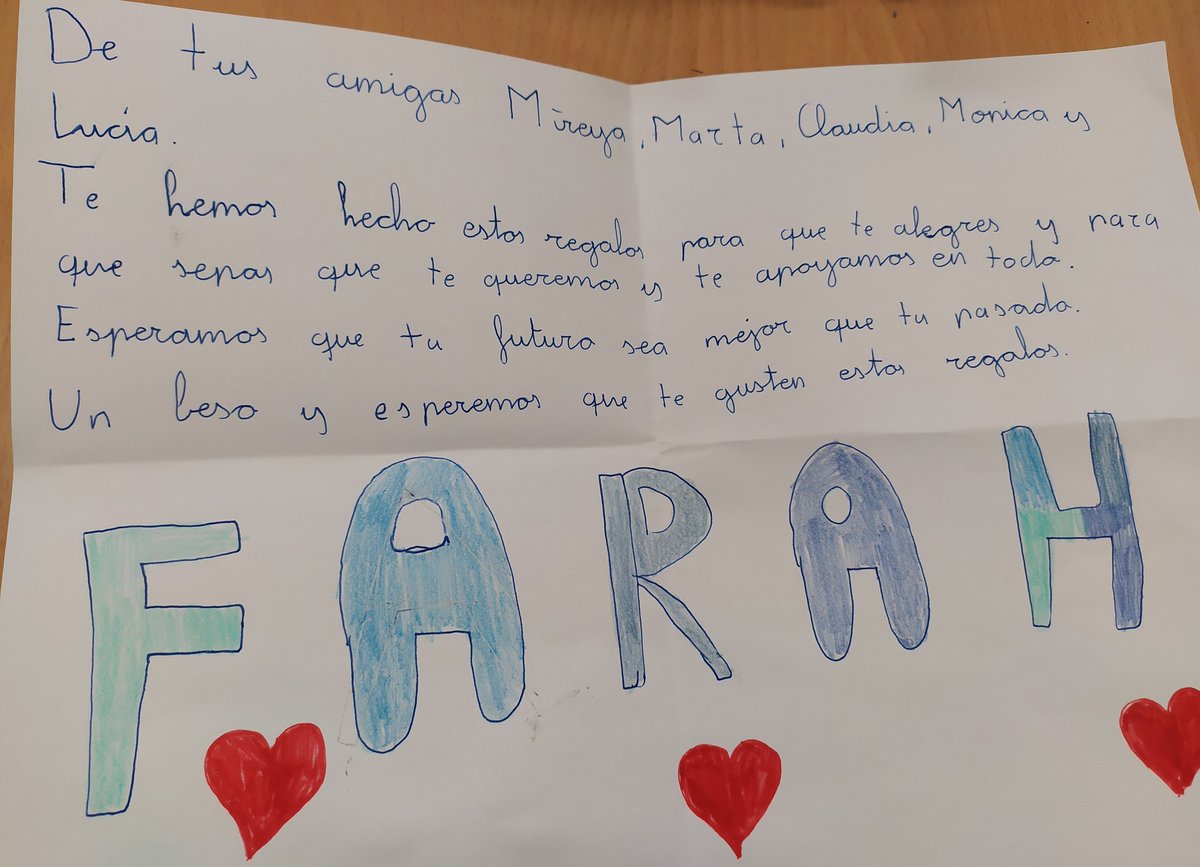 De tus amigas Mireya, Marta, Claudia, Monica y
Lucía.
Te hemos hecho estos regalos para que te alegres y para
que sepas que te queremos y te apoyamos en todo.
Esperamos que tu futuro sea mejor que tu pasado.
Un beso y esperemos que te gusten estos regalos.
FARAH